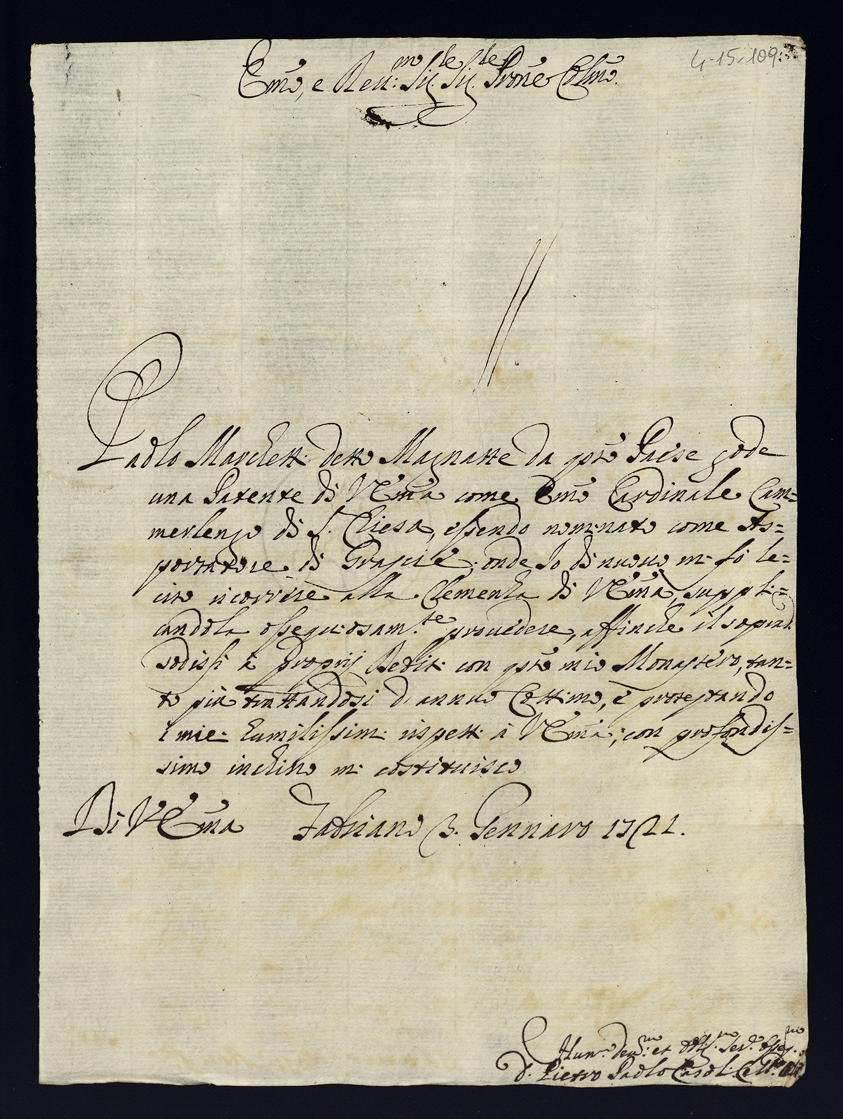 4-15-109
Em̃o, e Reu:mo Sig.le Sig.le Prone Colmo.
Paolo Marchetti detto Magnatte da qsto Paese gode
una Patente di VEm̃a come Em̃o Cardinale Cam=
merlengo di S. Chiesa, essendo nominato come As=
portatore di Grascie: onde Io di nuouo mi fò le=
cito ricorrere alla Clemenza di VEm̃a, suppli=
candola ossequiosam.te prouedere, affinche il soprad.
sodisfi à proprij Debiti con qsto mio Monastero, tan=
to più trattandosi di annuo Cottimo, e protestando
l miei humilissimi rispetti à VEm̃a; con profondis=
simo inchino mi costituisco
Di VEm̃a Fabriano 3. Gennaro 1721.
Hum.o deu.mo et Obl.mo Seru.e osseq.mo
D. Pietro Paolo